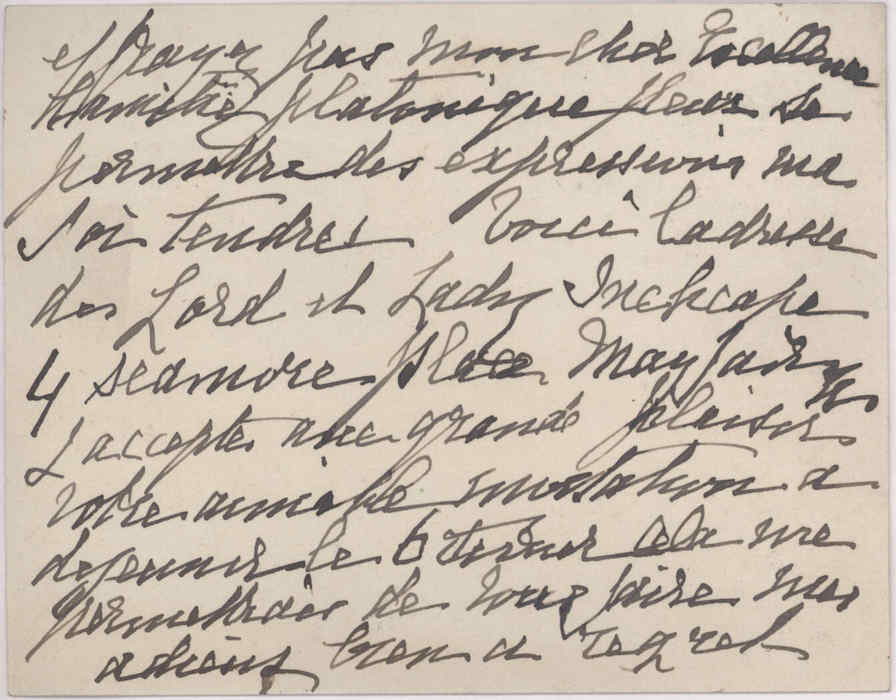 effrayez pas mon cher Excellence
l'amitié platonique peux se
permettre des expressions ma
foi tendres Voici l'adresse
des Lord et Lady Inchcape
4 seamore place Mayfair
J accepte avec grande plaisir
votre aimable invitation a
dejeuner le 6 cela me
permettrais de vous faire mes
adieus bien a regret